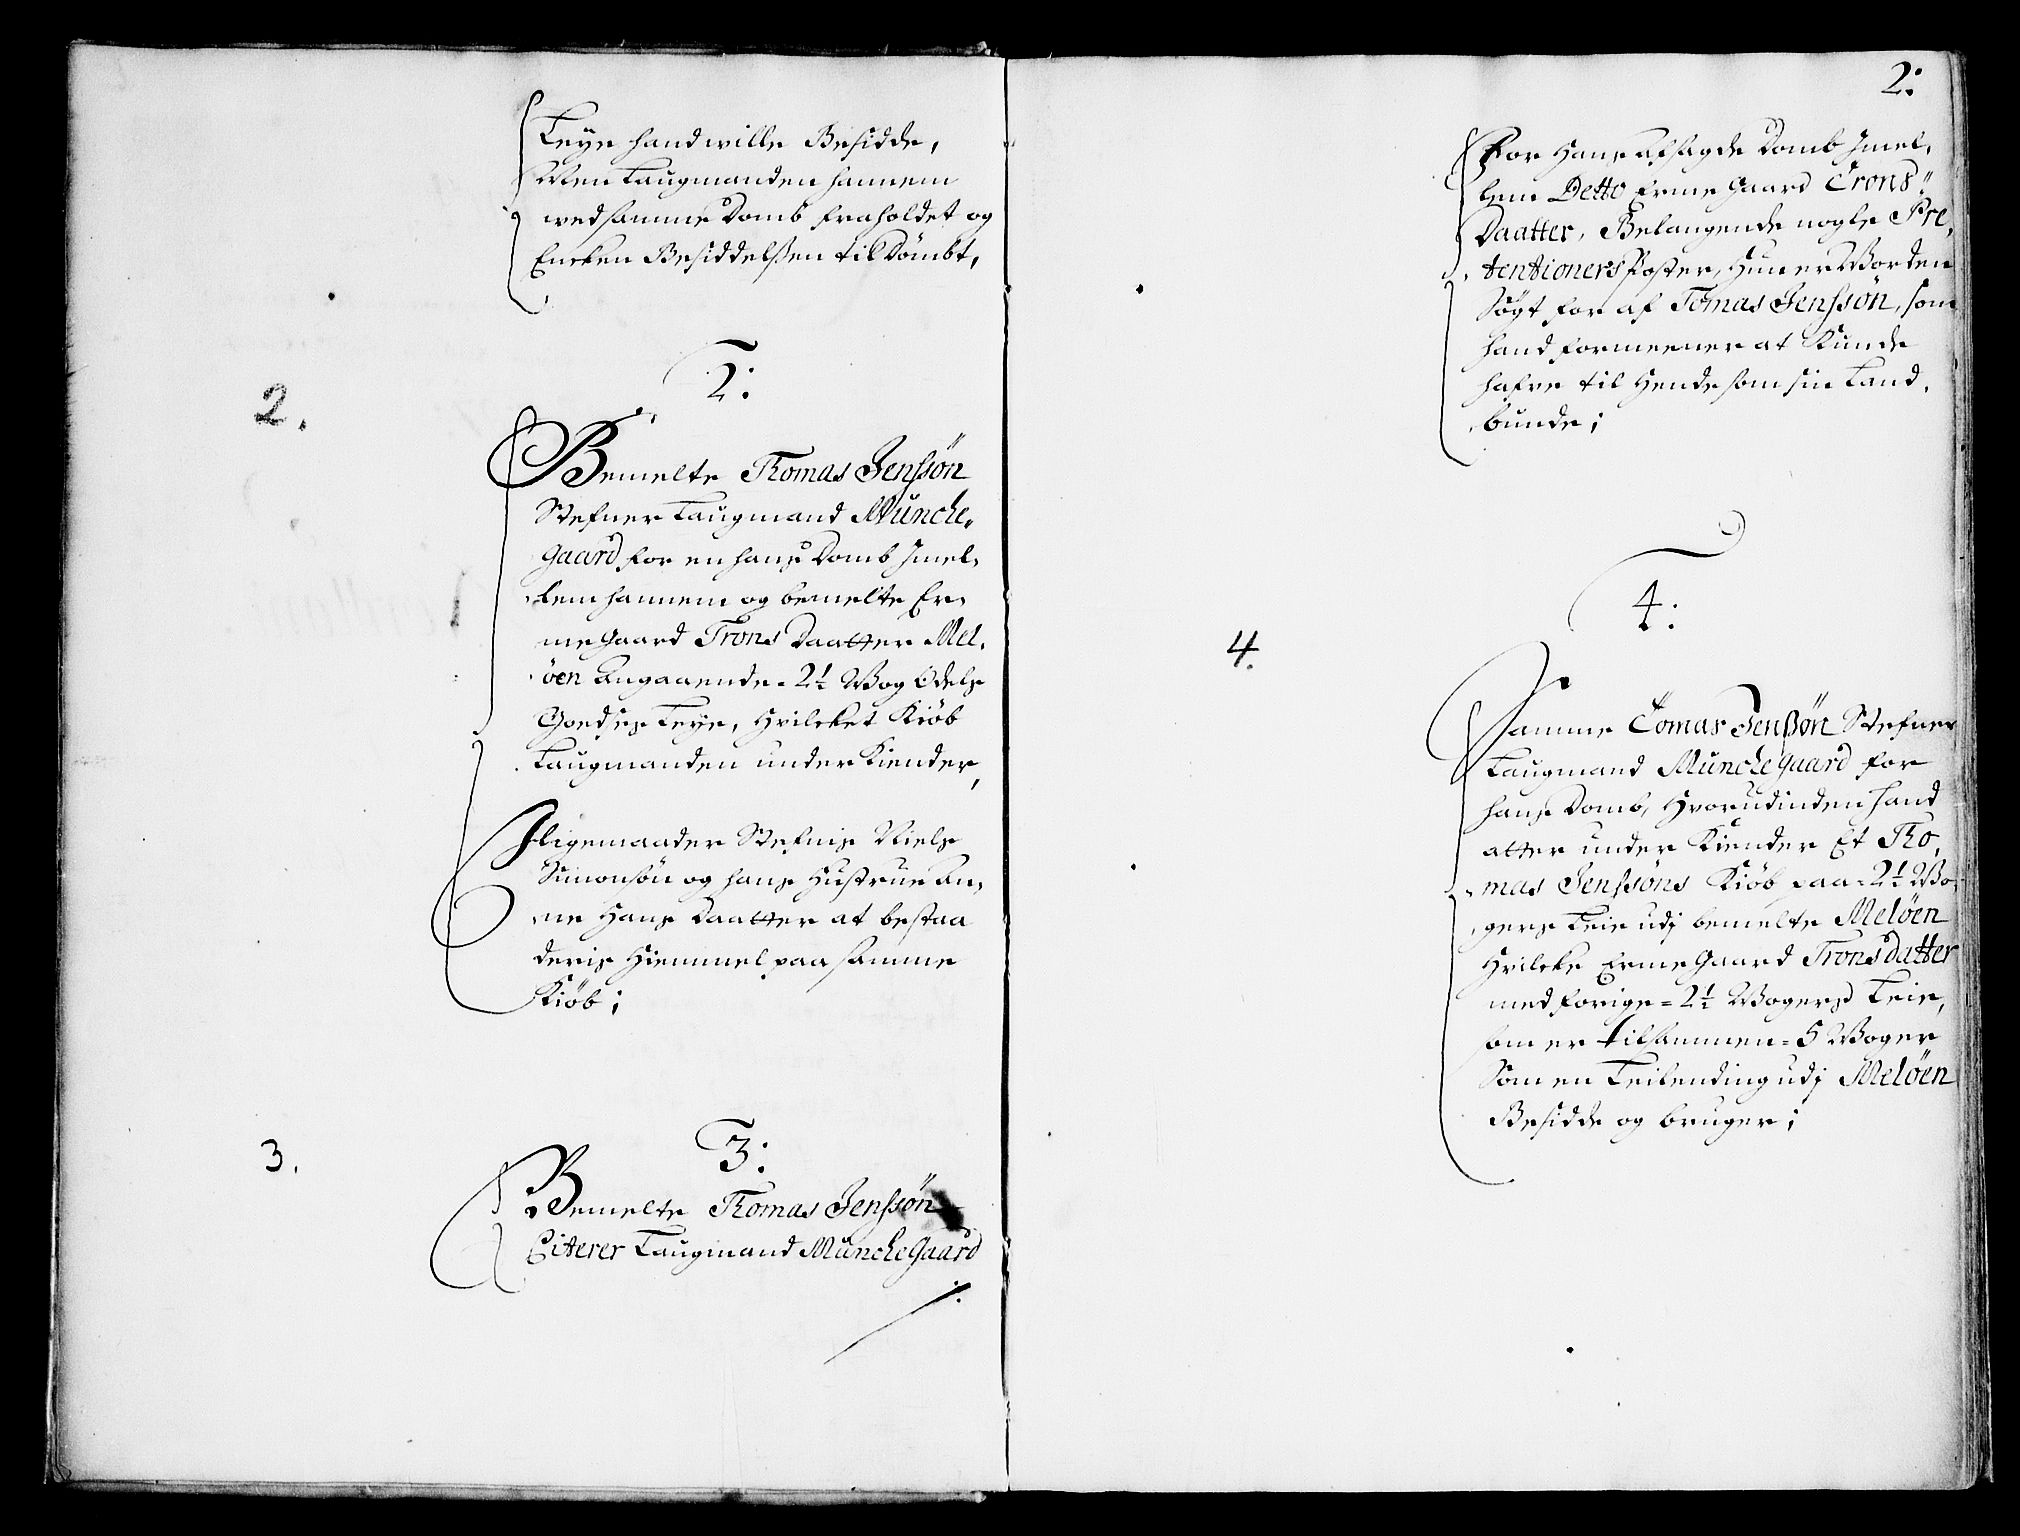 Leye hand wille Besidde,
Men Laugmanden hannem
ved samme Domb fraholdet og
Encken Besiddelsen til Dömbt,
2:
2.
Bemelte Thomas Jenssön
Stefner Laugmand Münche„
gaard for en hans Domb Jmel„
lem hannem og bemelte Er„
megaard Trons Daatter Mel„
öen Angaaende = 2½ Wog Odels
Goedses Leye, Hvilcket Kiöb
Laugmanden under Kiender,
Jligemaader Stefnis Niels
Simonsön og hans Hustrue An„
ne Hans Daatter at bestaa
deris Hiemmel paa samme
Kiöb;
3:
3.
Bemelte Thomas Jenssön
Citerer Laugmand Münchegaard
2:
For Hans afsagde Domb Jmel„
lem Detto Ermegaard Trons„
Daatter, Belangende nogle Pre„
tentioners Poster, Hun er Worden
Sögt for af Tomas Jenssön, som
hand formeener at Kunde
hafve til Hende som sin Land„
bunde;
4:
4.
Samme Tomas Jenssön Stefner
Laugmand Münchegaard for
hans Domb, Hvorudinden hand
atter under Kiender Et Tho„
mas Jenssöns Kiöb paa = 2½ Wo„
gers Leie udj bemelte Melöen
Hvilcke Ermegaard Tronsdatter
med forige = 2½ Wogers Leie,
som er tilsammen = 5 Woger
Som en Leilending udj Melöen
Besidde og bruger;